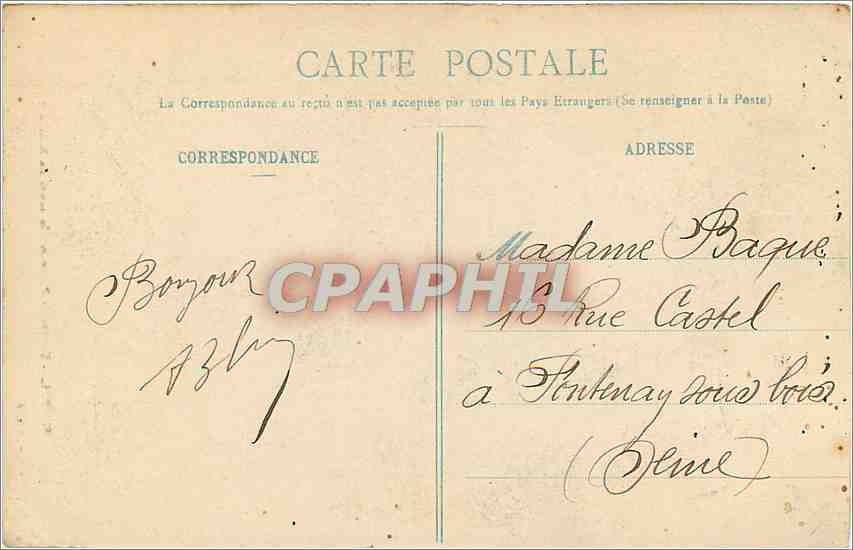 CARTE POSTALE
La Correspondance au recto n'est pas acceptée par tous les Pays Etrangers (Se renseigner à la Poste)
CORRESPONDANCE
Bonjour
ADRESSE
Madame Baque
16 Rue Castel
à Fontenay sous bois.
(Seine)
CPAPHIL